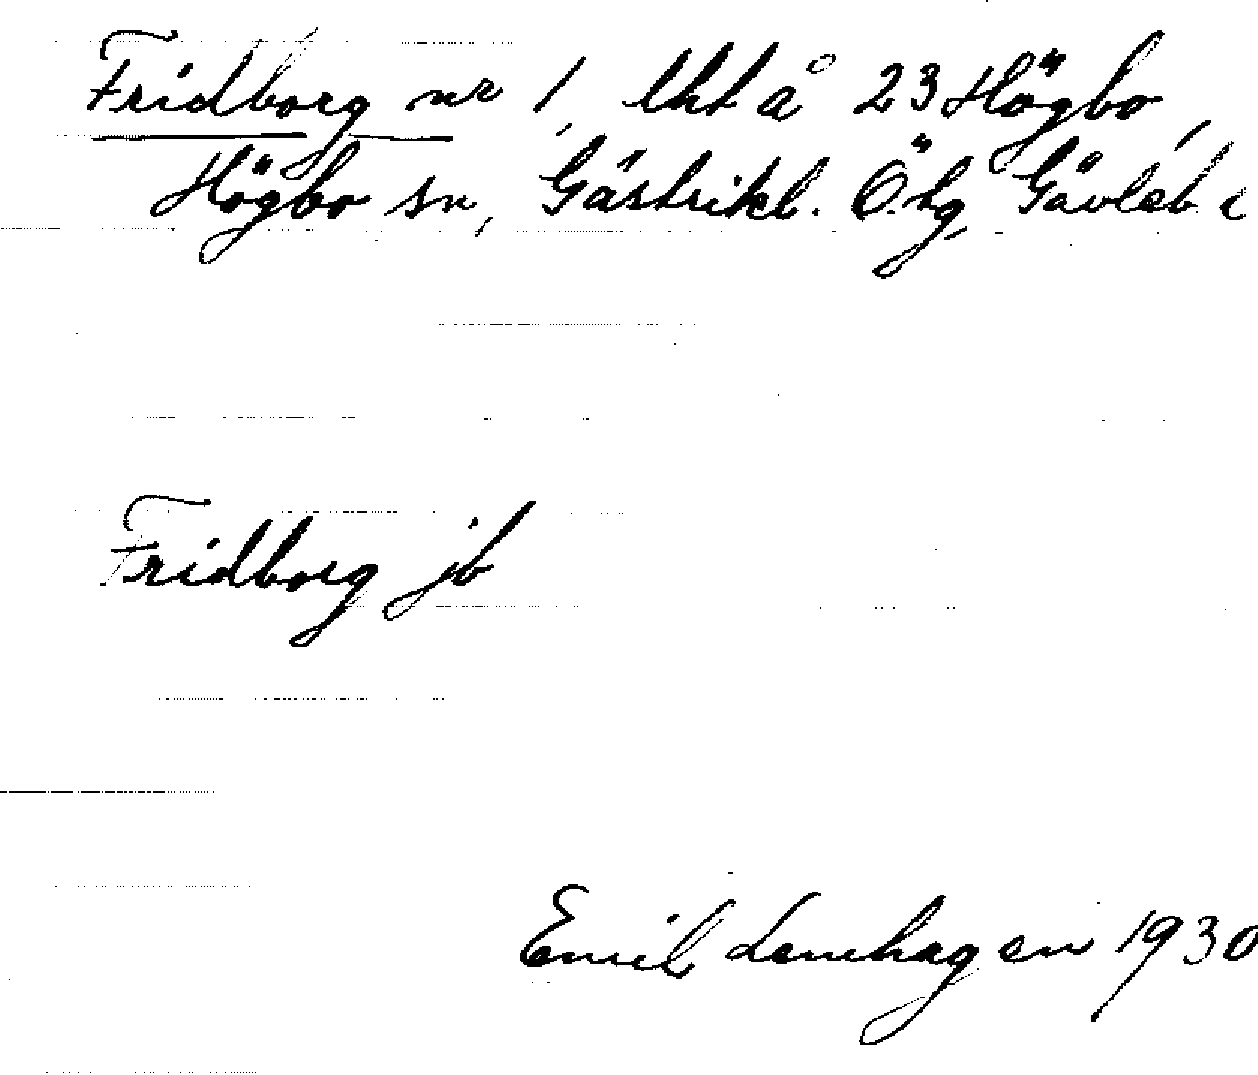 Fridborg nr 1, lht å 23 Högbo,
Högbo sn, Gästrikl. Ö. tg, Gävleb. l
Fridborg jb
Emil Lenhagen 1930